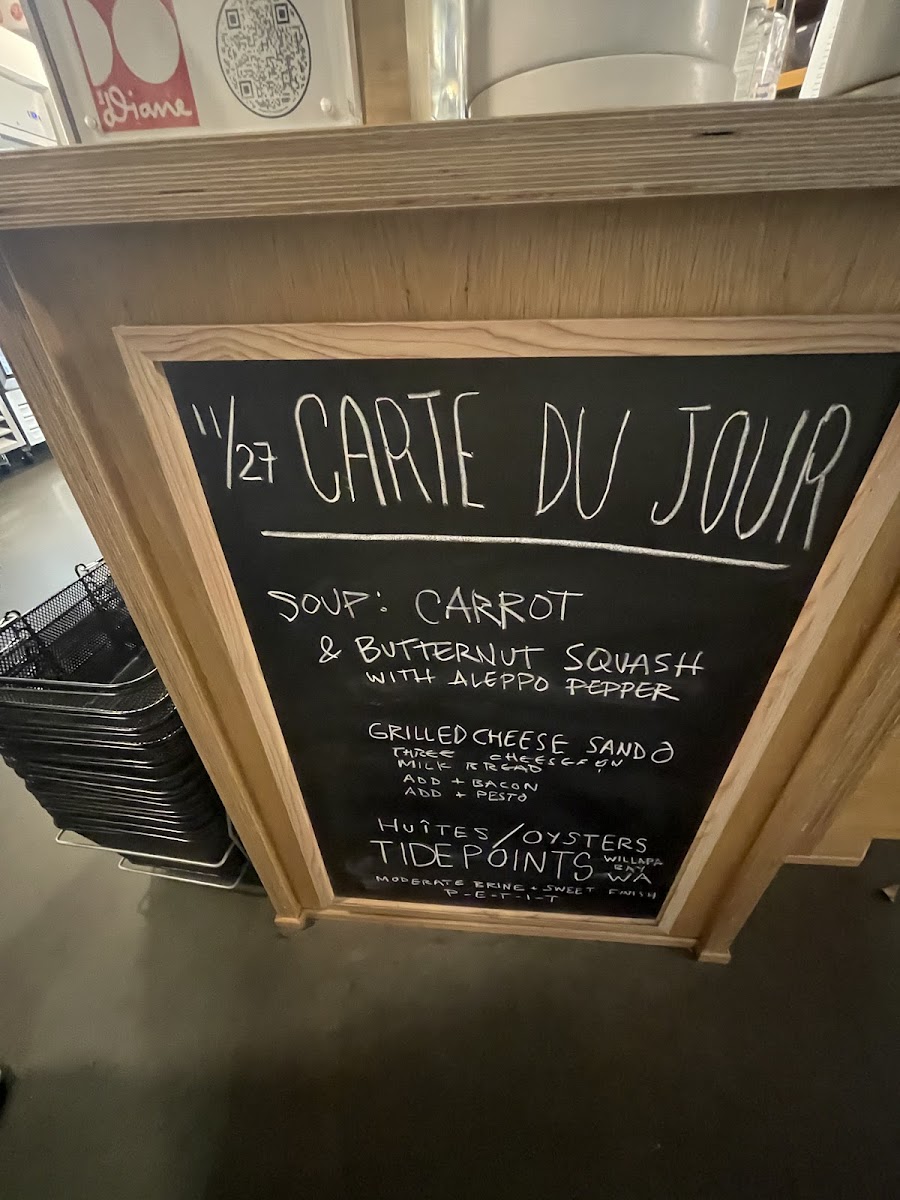 Diane
11/27 CARTE DU JOUR
SOUP: CARROT
& BUTTERNUT SQUASH
WITH ALEPPO PEPPER
GRILLED CHEESE SANDO
THREE CHEESES ON
MILK BREAD
ADD + BACON
ADD + PESTO
HUÎTES/OYSTERS
TIDEPOINTS WILLAPA BAY WA
MODERATE BRINE + SWEET FINISH
P-E-T-I-T